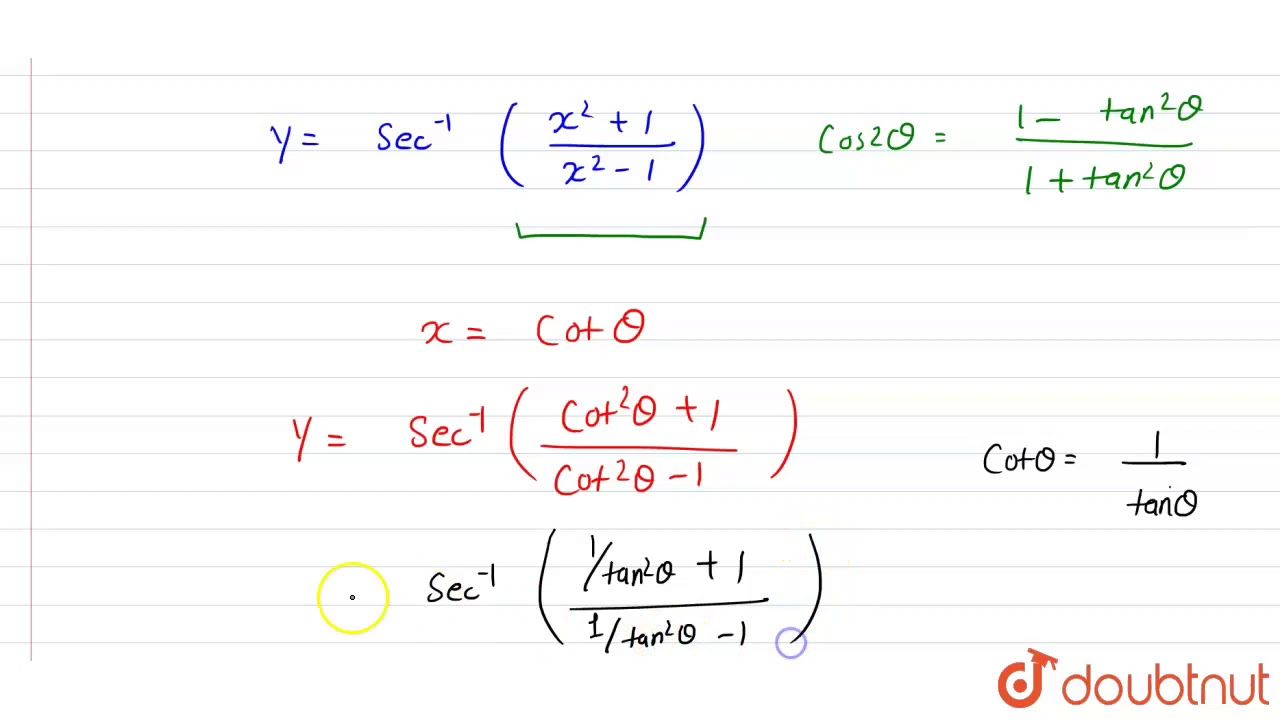 y = Sec⁻¹ ( (x² + 1) / (x² - 1) )
Cos2θ = (1 - tan²θ) / (1 + tan²θ)
x = Cot θ
y = Sec⁻¹ ( (Cot²θ + 1) / (Cot²θ - 1) )
Cotθ = 1 / tanθ
Sec⁻¹ ( (1/tan²θ + 1) / (1/tan²θ - 1) )
doubtnut